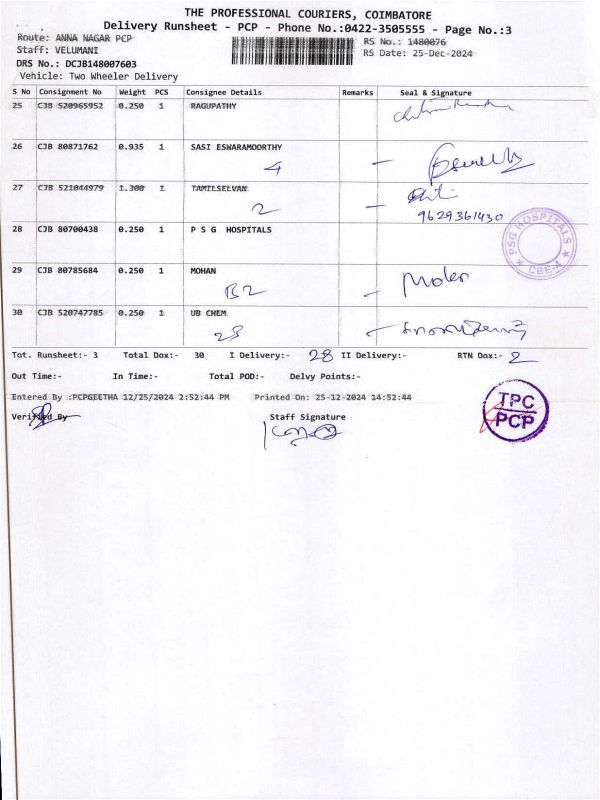 THE PROFESSIONAL COURIERS, COIMBATORE
Delivery Runsheet - PCP - Phone No.:0422-3505555 - Page No.:3
Route: ANNA NAGAR PCP RS No.: 1480076
Staff: VELUMANI RS Date: 25-Dec-2024
DRS No.: DCJB148007603
Vehicle: Two Wheeler Delivery
S No Consignment No Weight PCS Consignee Details Remarks Seal & Signature
25 CJB 520965952 0.250 1 RAGUPATHY
26 CJB 80871762 0.935 1 SASI ESWARAMOORTHY
4
27 CJB 521044979 1.300 1 TAMILSELVAN
2 9629361430
28 CJB 80700438 0.250 1 P S G HOSPITALS
PSG HOSPITALS
CBE-4
29 CJB 80785684 0.250 1 MOHAN
B2
30 CJB 520747785 0.250 1 UB CHEM
28
Tot. Runsheet:- 3 Total Dox:- 30 I Delivery:- 28 II Delivery:- RTN Dox:- 2
Out Time:- In Time:- Total POD:- Delvy Points:-
Entered By :PCPGEETHA 12/25/2024 2:52:44 PM Printed On: 25-12-2024 14:52:44
Verified By Staff Signature
TPC
PCP